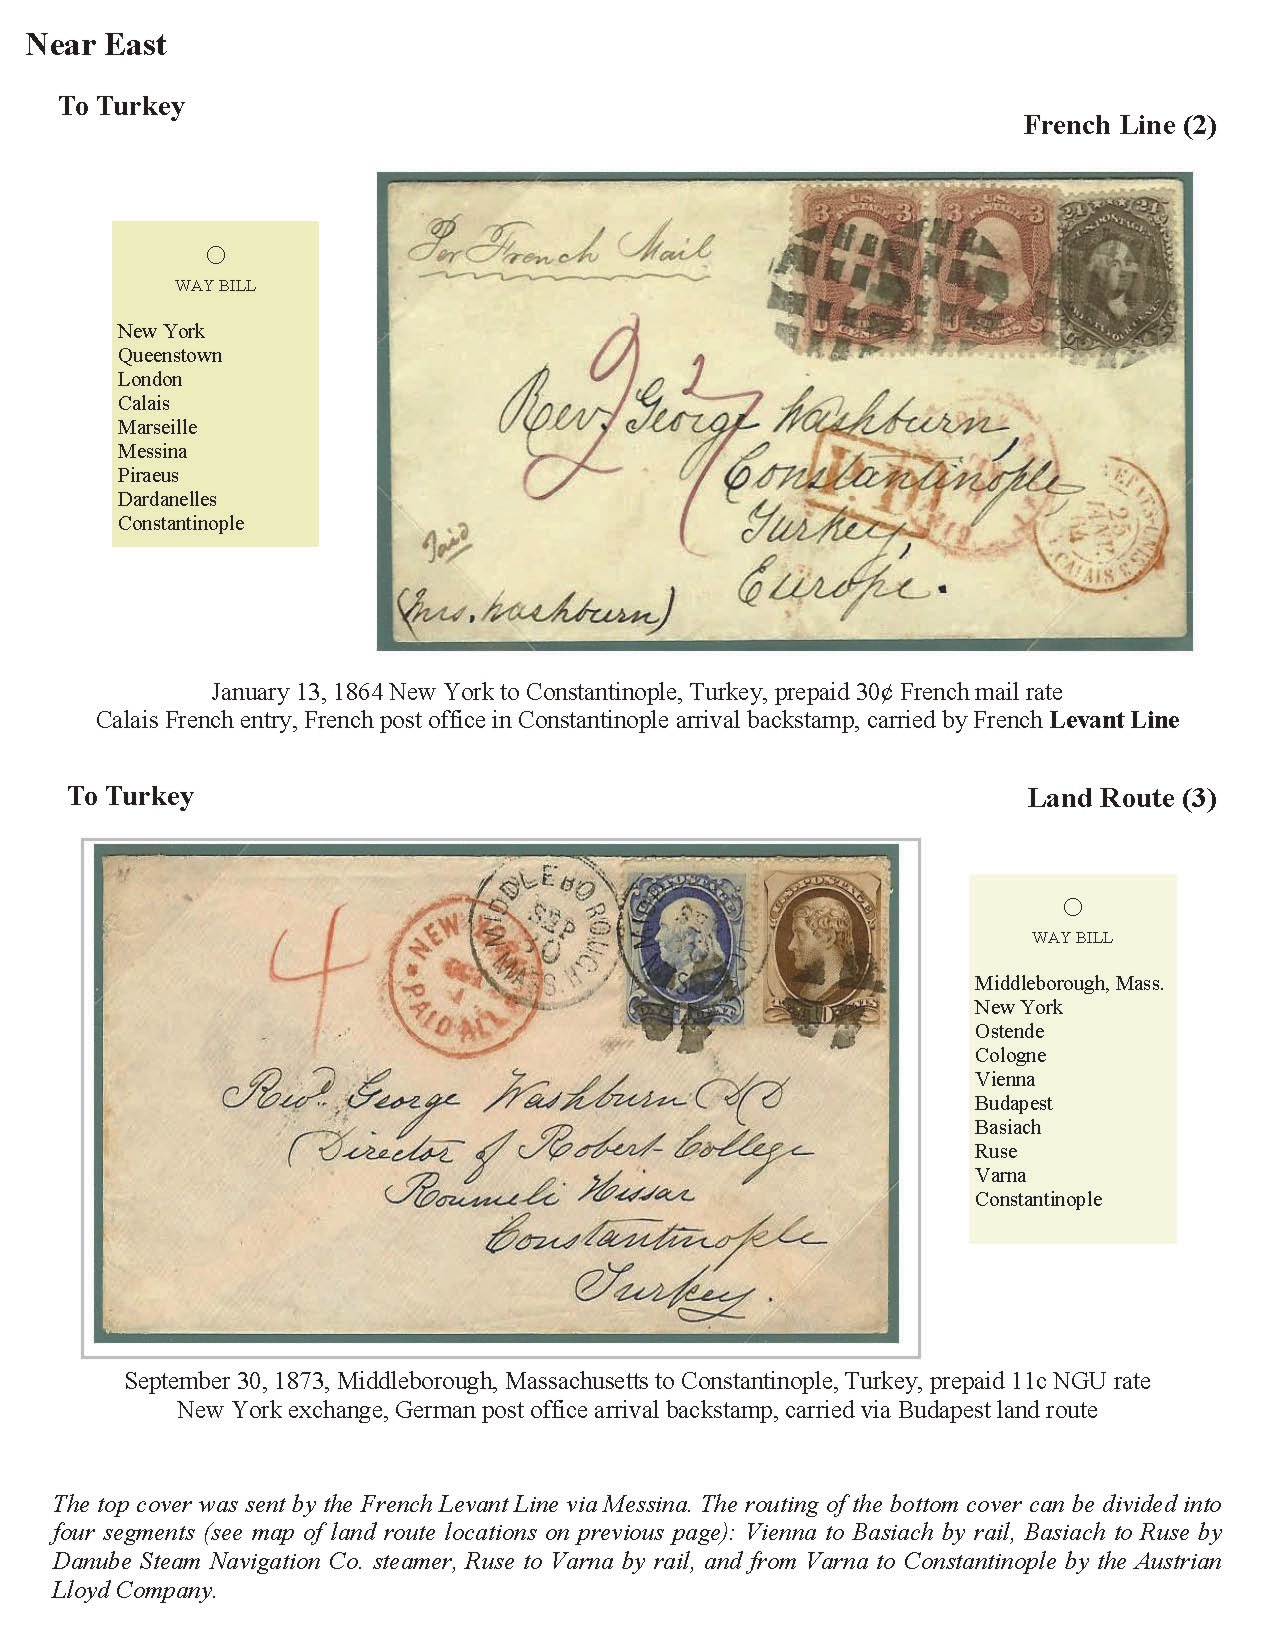 Near East
To Turkey
French Line (2)
WAY BILL
New York
Queenstown
London
Calais
Marseille
Messina
Piraeus
Dardanelles
Constantinople
Per French Mail
3 3
3 3
24 24
U.S. POSTAGE
27
Rev. George Washburn,
Constantinople,
Turkey,
Europe.
Paid
(Mrs. Washburn)
P.D.
25
JANV.
64
CALAIS
January 13, 1864 New York to Constantinople, Turkey, prepaid 30¢ French mail rate
Calais French entry, French post office in Constantinople arrival backstamp, carried by French Levant Line
To Turkey
Land Route (3)
4
NEW YORK
PAID ALL
MIDDLEBOROUGH
SEP
MASS.
U.S. POSTAGE
Revd. George Washburn DD
Director of Robert College
Roumeli Hissar
Constantinople
Turkey.
WAY BILL
Middleborough, Mass.
New York
Ostende
Cologne
Vienna
Budapest
Basiach
Ruse
Varna
Constantinople
September 30, 1873, Middleborough, Massachusetts to Constantinople, Turkey, prepaid 11c NGU rate
New York exchange, German post office arrival backstamp, carried via Budapest land route
The top cover was sent by the French Levant Line via Messina. The routing of the bottom cover can be divided into
four segments (see map of land route locations on previous page): Vienna to Basiach by rail, Basiach to Ruse by
Danube Steam Navigation Co. steamer, Ruse to Varna by rail, and from Varna to Constantinople by the Austrian
Lloyd Company.